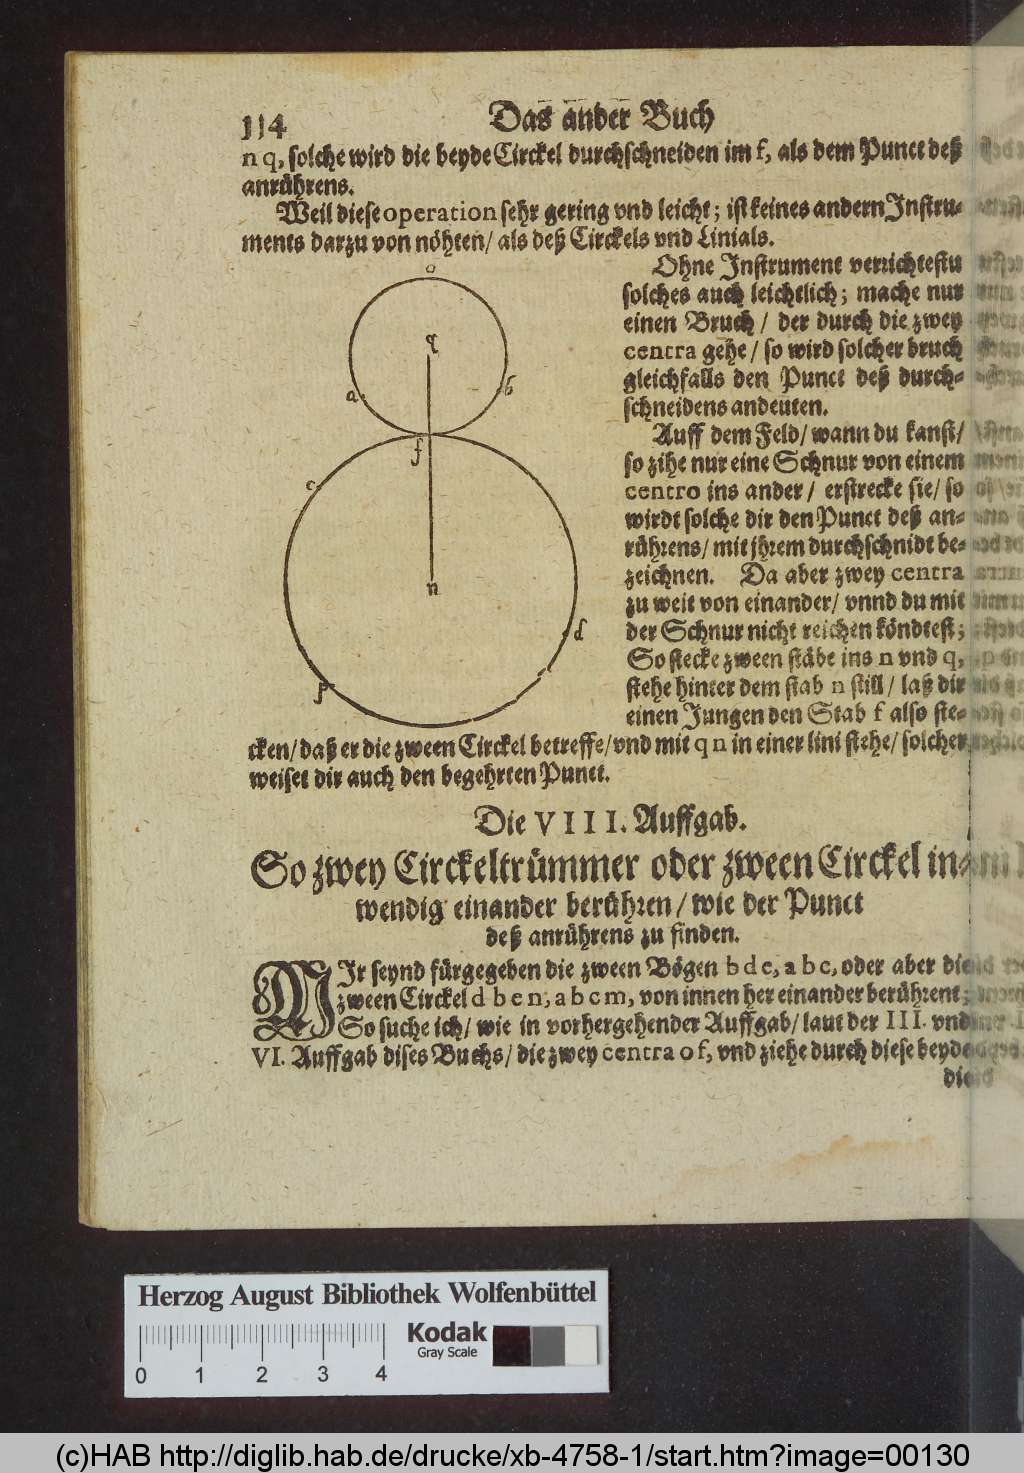 114
Das ander Buch
n q, solche wird die beyde Circkel durchschneiden im f, als dem Punct deß
anrührens.
Weil diese operation sehr gering vnd leicht; ist keines andern Instru-
ments darzu von nöhten/ als deß Circkels vnd Linials.
Ohne Instrument verrichtestu
solches auch leichtlich; mache nur
einen Bruch/ der durch die zwey
centra gehe/ so wird solcher bruch
gleichfalls den Punct deß durch-
schneidens andeuten.
Auff dem Feld/ wann du kanst/
so zihe nur eine Schnur von einem
centro ins ander/ erstrecke sie/ so
wirdt solche dir den Punct deß an-
rührens/ mit jhrem durchschnidt be-
zeichnen. Da aber zwey centra
zu weit von einander/ vnnd du mit
der Schnur nicht reichen köndtest;
So stecke zween stäbe ins n vnd q,
stehe hinter dem stab n still/ laß dir
einen Jungen den Stab f also ste-
cken/ daß er die zween Circkel betreffe/ vnd mit q n in einer lini stehe/ solcher
weiset dir auch den begehrten Punct.
o
q
a
b
f
c
n
d
p
Die VIII. Auffgab.
So zwey Circkeltrümmer oder zween Circkel in-
wendig einander berühren/ wie der Punct
deß anrührens zu finden.
MIr seynd fürgegeben die zween Bögen b d c, a b c, oder aber die
zween Circkel d b e n, a b c m, von innen her einander berührent;
So suche ich/ wie in vorhergehender Auffgab/ laut der III. vnd
VI. Auffgab dises Buchs/ die zwey centra o f, vnd ziehe durch diese beyde
die
Herzog August Bibliothek Wolfenbüttel
0 1 2 3 4
Kodak
Gray Scale
(c)HAB http://diglib.hab.de/drucke/xb-4758-1/start.htm?image=00130